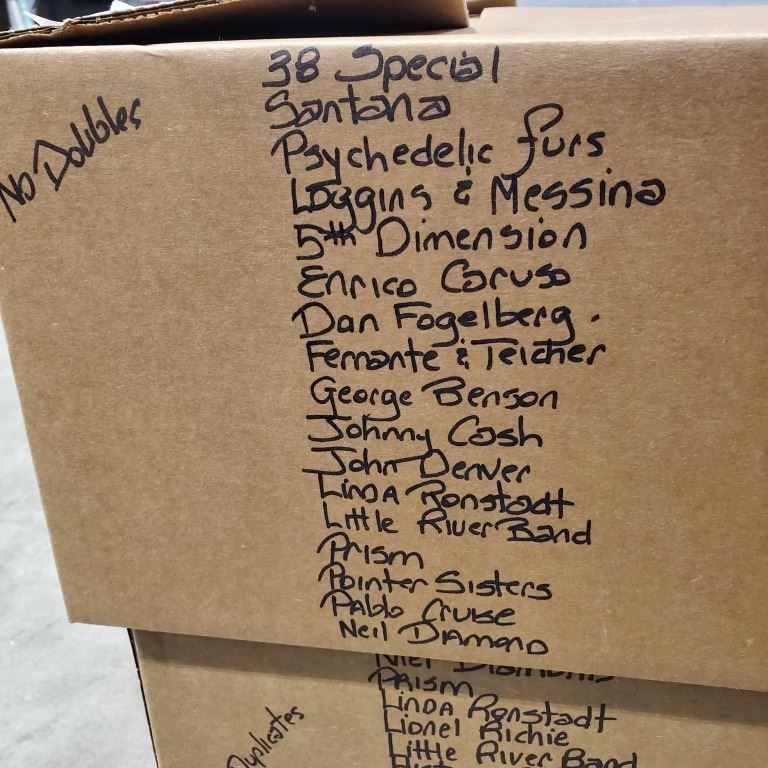 No Doubles
38 Special
Santana
Psychedelic furs
Loggins & Messina
5th Dimension
Enrico Caruso
Dan Fogelberg .
Ferrante & Teicher
George Benson
Johnny Cash
John Denver
Linda Ronstadt
Little River Band
Prism
Pointer Sisters
Pablo Cruise
Neil Diamond
Prism
Linda Ronstadt
Lionel Richie
Little River Band
Duplicates